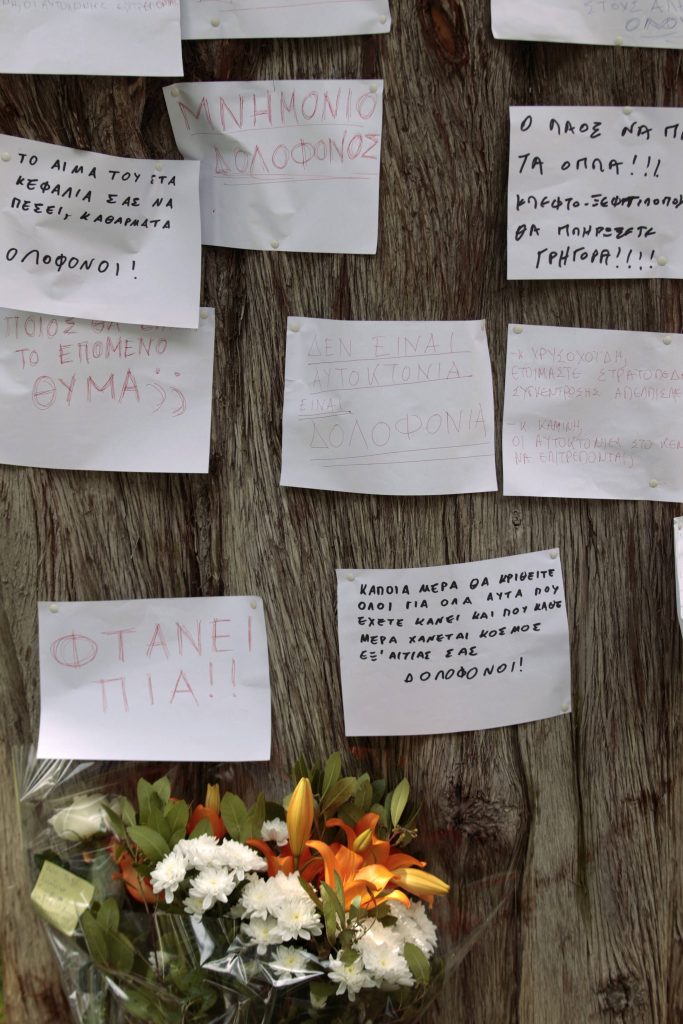 ΜΝΗΜΟΝΙΟ
ΔΟΛΟΦΟΝΟΣ
ΤΟ ΑΙΜΑ ΤΟΥ ΣΤΑ
ΚΕΦΑΛΙΑ ΣΑΣ ΝΑ
ΠΕΣΕΙ, ΚΑΘΑΡΜΑΤΑ
ΟΛΟΦΟΝΟΙ!
Ο ΛΑΟΣ ΝΑ
ΤΑ ΟΠΛΑ!!!
ΘΑ ΠΛΗΡΩΣΕΤΕ
ΓΡΗΓΟΡΑ!!!!
ΠΟΙΟΣ ΘΑ
ΤΟ ΕΠΟΜΕΝΟ
ΘΥΜΑ;;
ΔΕΝ ΕΙΝΑΙ
ΑΥΤΟΚΤΟΝΙΑ
ΕΙΝΑΙ
ΔΟΛΟΦΟΝΙΑ
-Κ ΧΡΥΣΟΧΟΪΔΗ,
ΕΤΟΙΜΑΣΤΕ ΣΤΡΑΤΟΠΕΔΑ
ΣΥΓΚΕΝΤΡΩΣΗΣ
-Κ ΚΑΜΙΝΗ,
ΟΙ ΑΥΤΟΚΤΟΝΙΕΣ ΣΤΟ ΚΕΝ
ΝΑ ΕΠΙΤΡΕΠΟΝΤΑΙ;
ΦΤΑΝΕΙ
ΠΙΑ!!
ΚΑΠΟΙΑ ΜΕΡΑ ΘΑ ΚΡΙΘΕΙΤΕ
ΟΛΟΙ ΓΙΑ ΟΛΑ ΑΥΤΑ ΠΟΥ
ΕΧΕΤΕ ΚΑΝΕΙ ΚΑΙ ΠΟΥ ΚΑΘΕ
ΜΕΡΑ ΧΑΝΕΤΑΙ ΚΟΣΜΟΣ
ΕΞ'ΑΙΤΙΑΣ ΣΑΣ
ΔΟΛΟΦΟΝΟΙ!